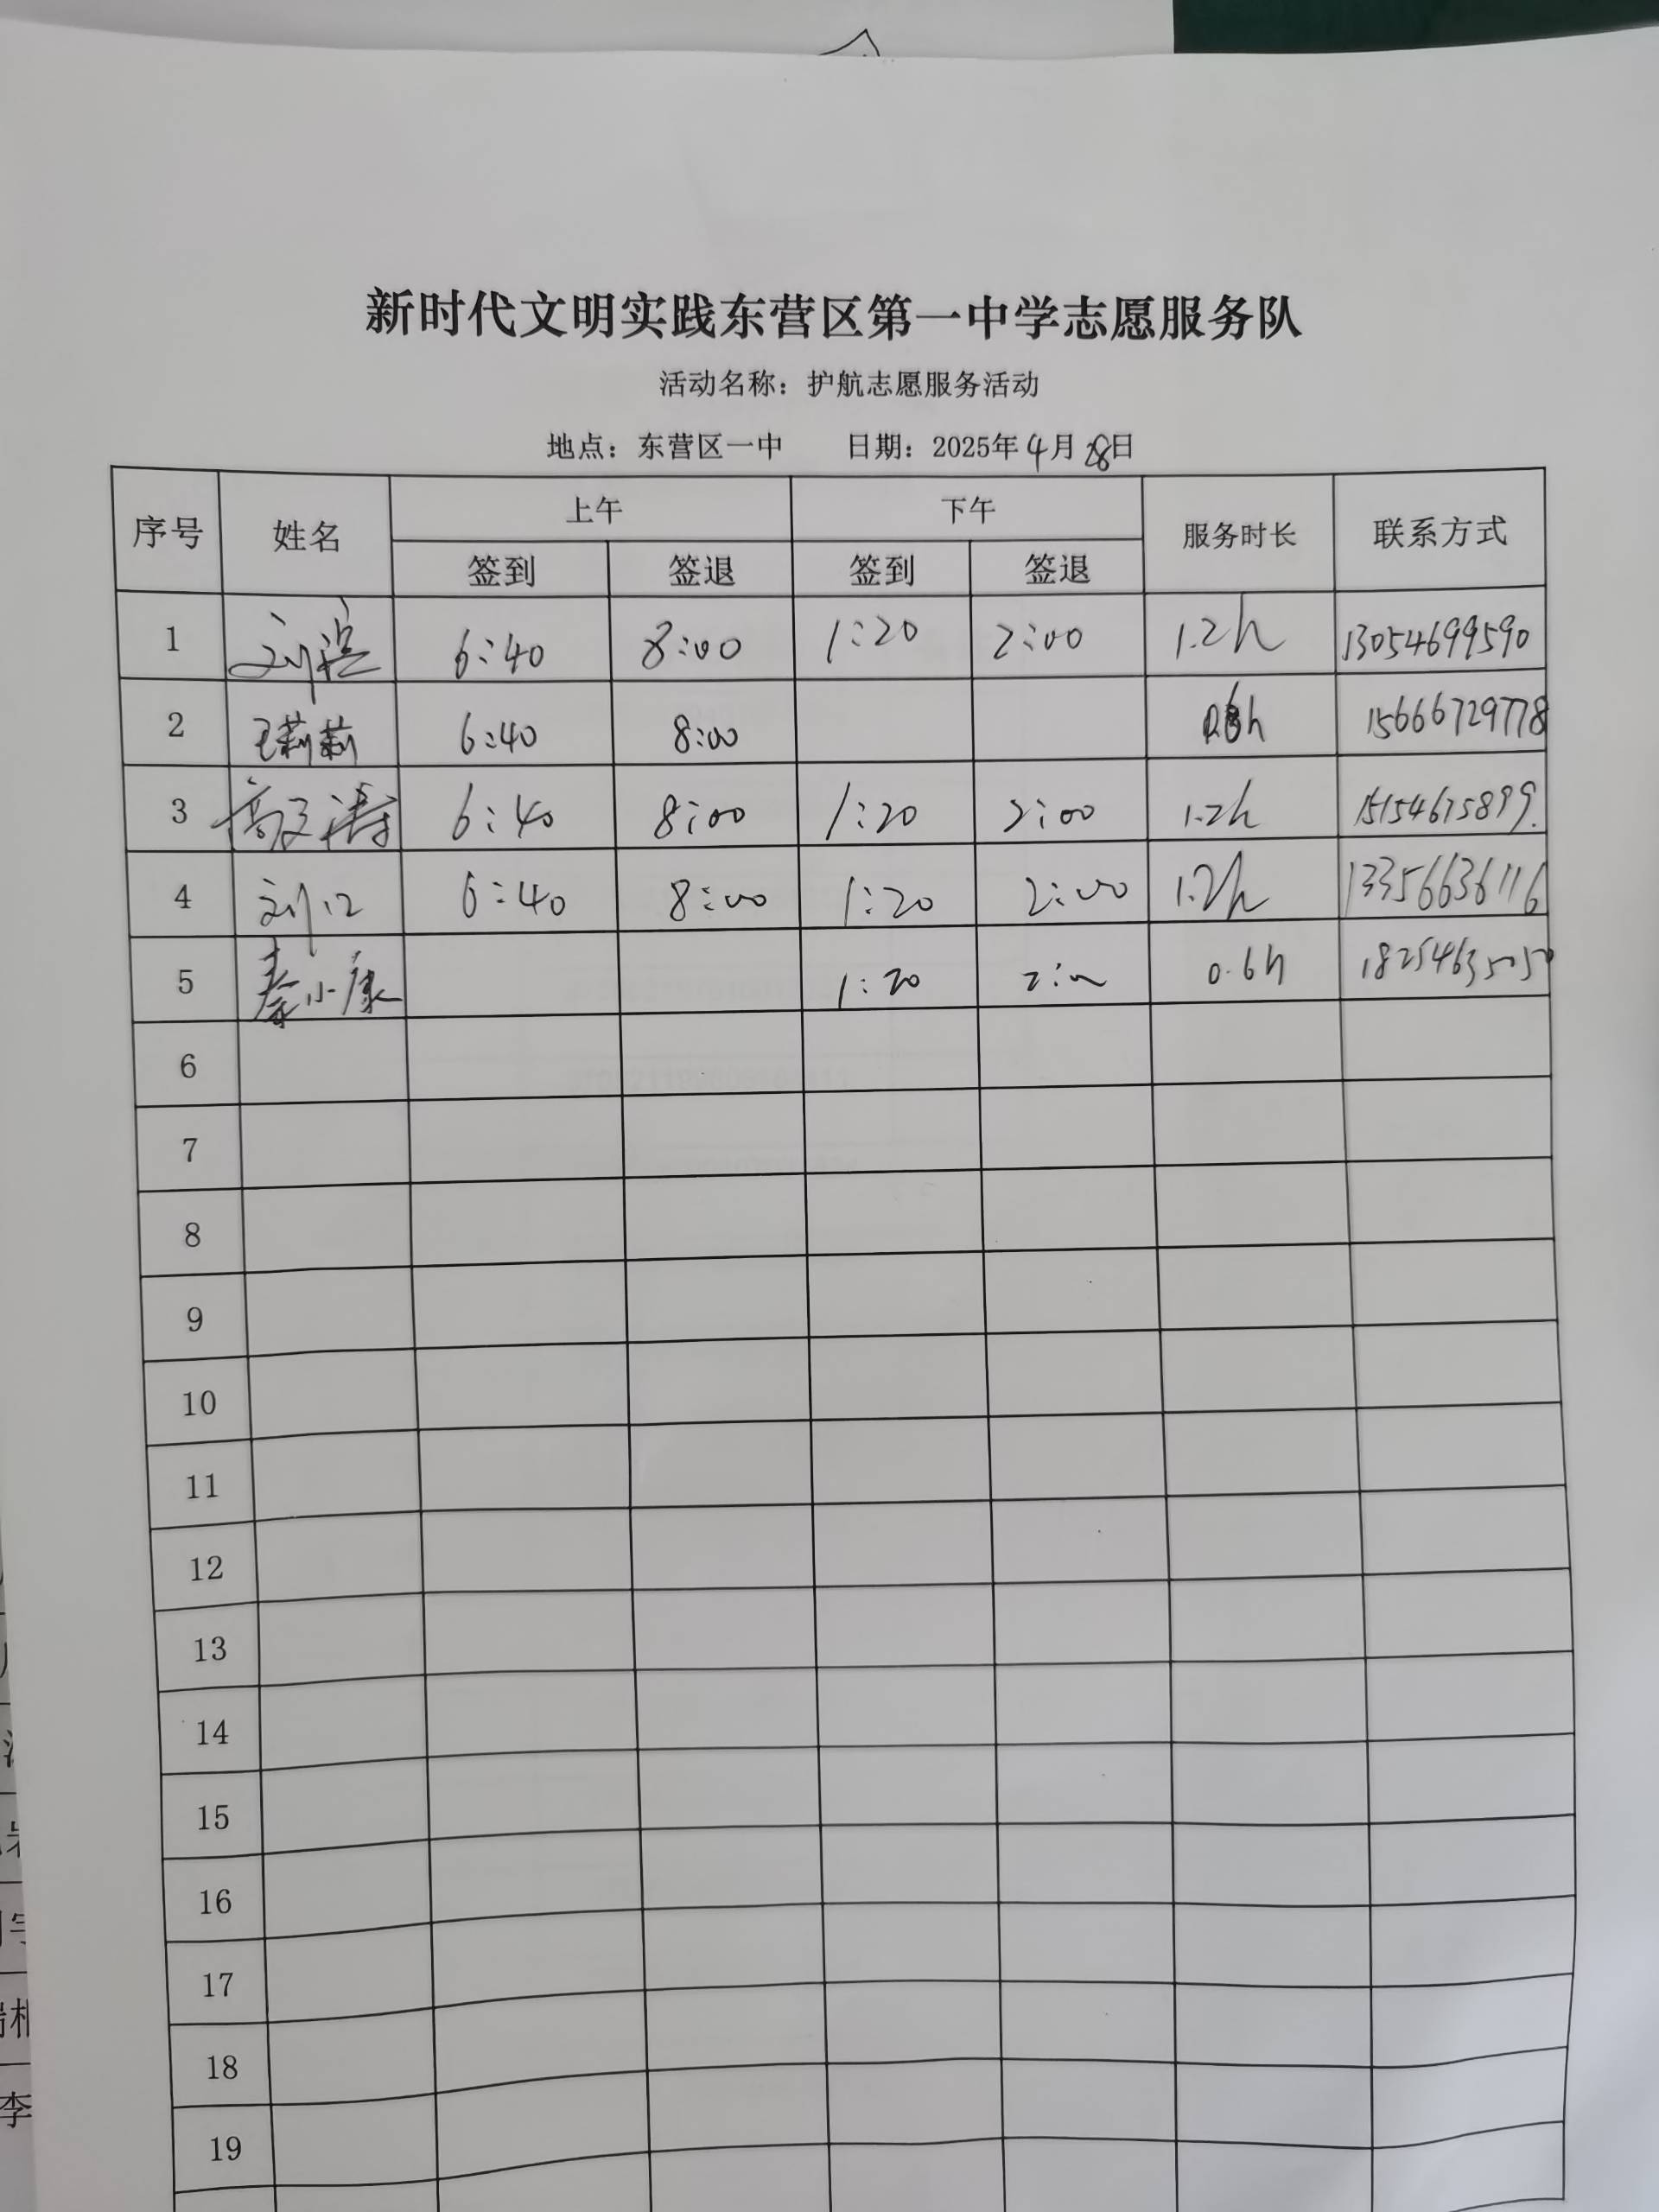 新时代文明实践东营区第一中学志愿服务队
活动名称：护航志愿服务活动
地点：东营区一中 日期：2025年4月28日
序号 姓名 上午 下午 服务时长 联系方式
签到 签退 签到 签退
1 刘滨 6:40 8:00 1:20 2:00 1.2h 13054699590
2 王莉莉 6:40 8:00 15666729778
3 6:40 8:00 1:20 2:00 1.2h 15154615899
4 刘 6:40 8:00 1:20 2:00 1.2h 13356636116
5 秦小康 1:20 2:00 0.6h 18254635050
6
7
8
9
10
11
12
13
14
15
16
17
18
19
李